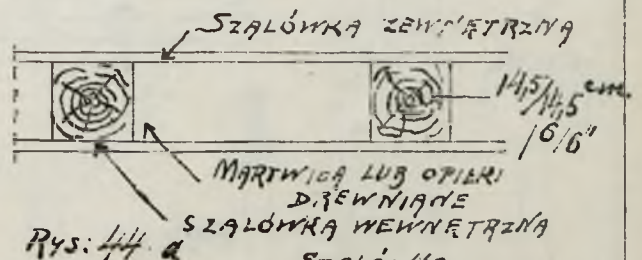 SZALÓWKA ZEWNĘTRZNA
14,5/14,5 cm.
6/6"
MARTWICA LUB OPIŁKI
DREWNIANE
SZALÓWKA WEWNĘTRZNA
Rys: 44 a